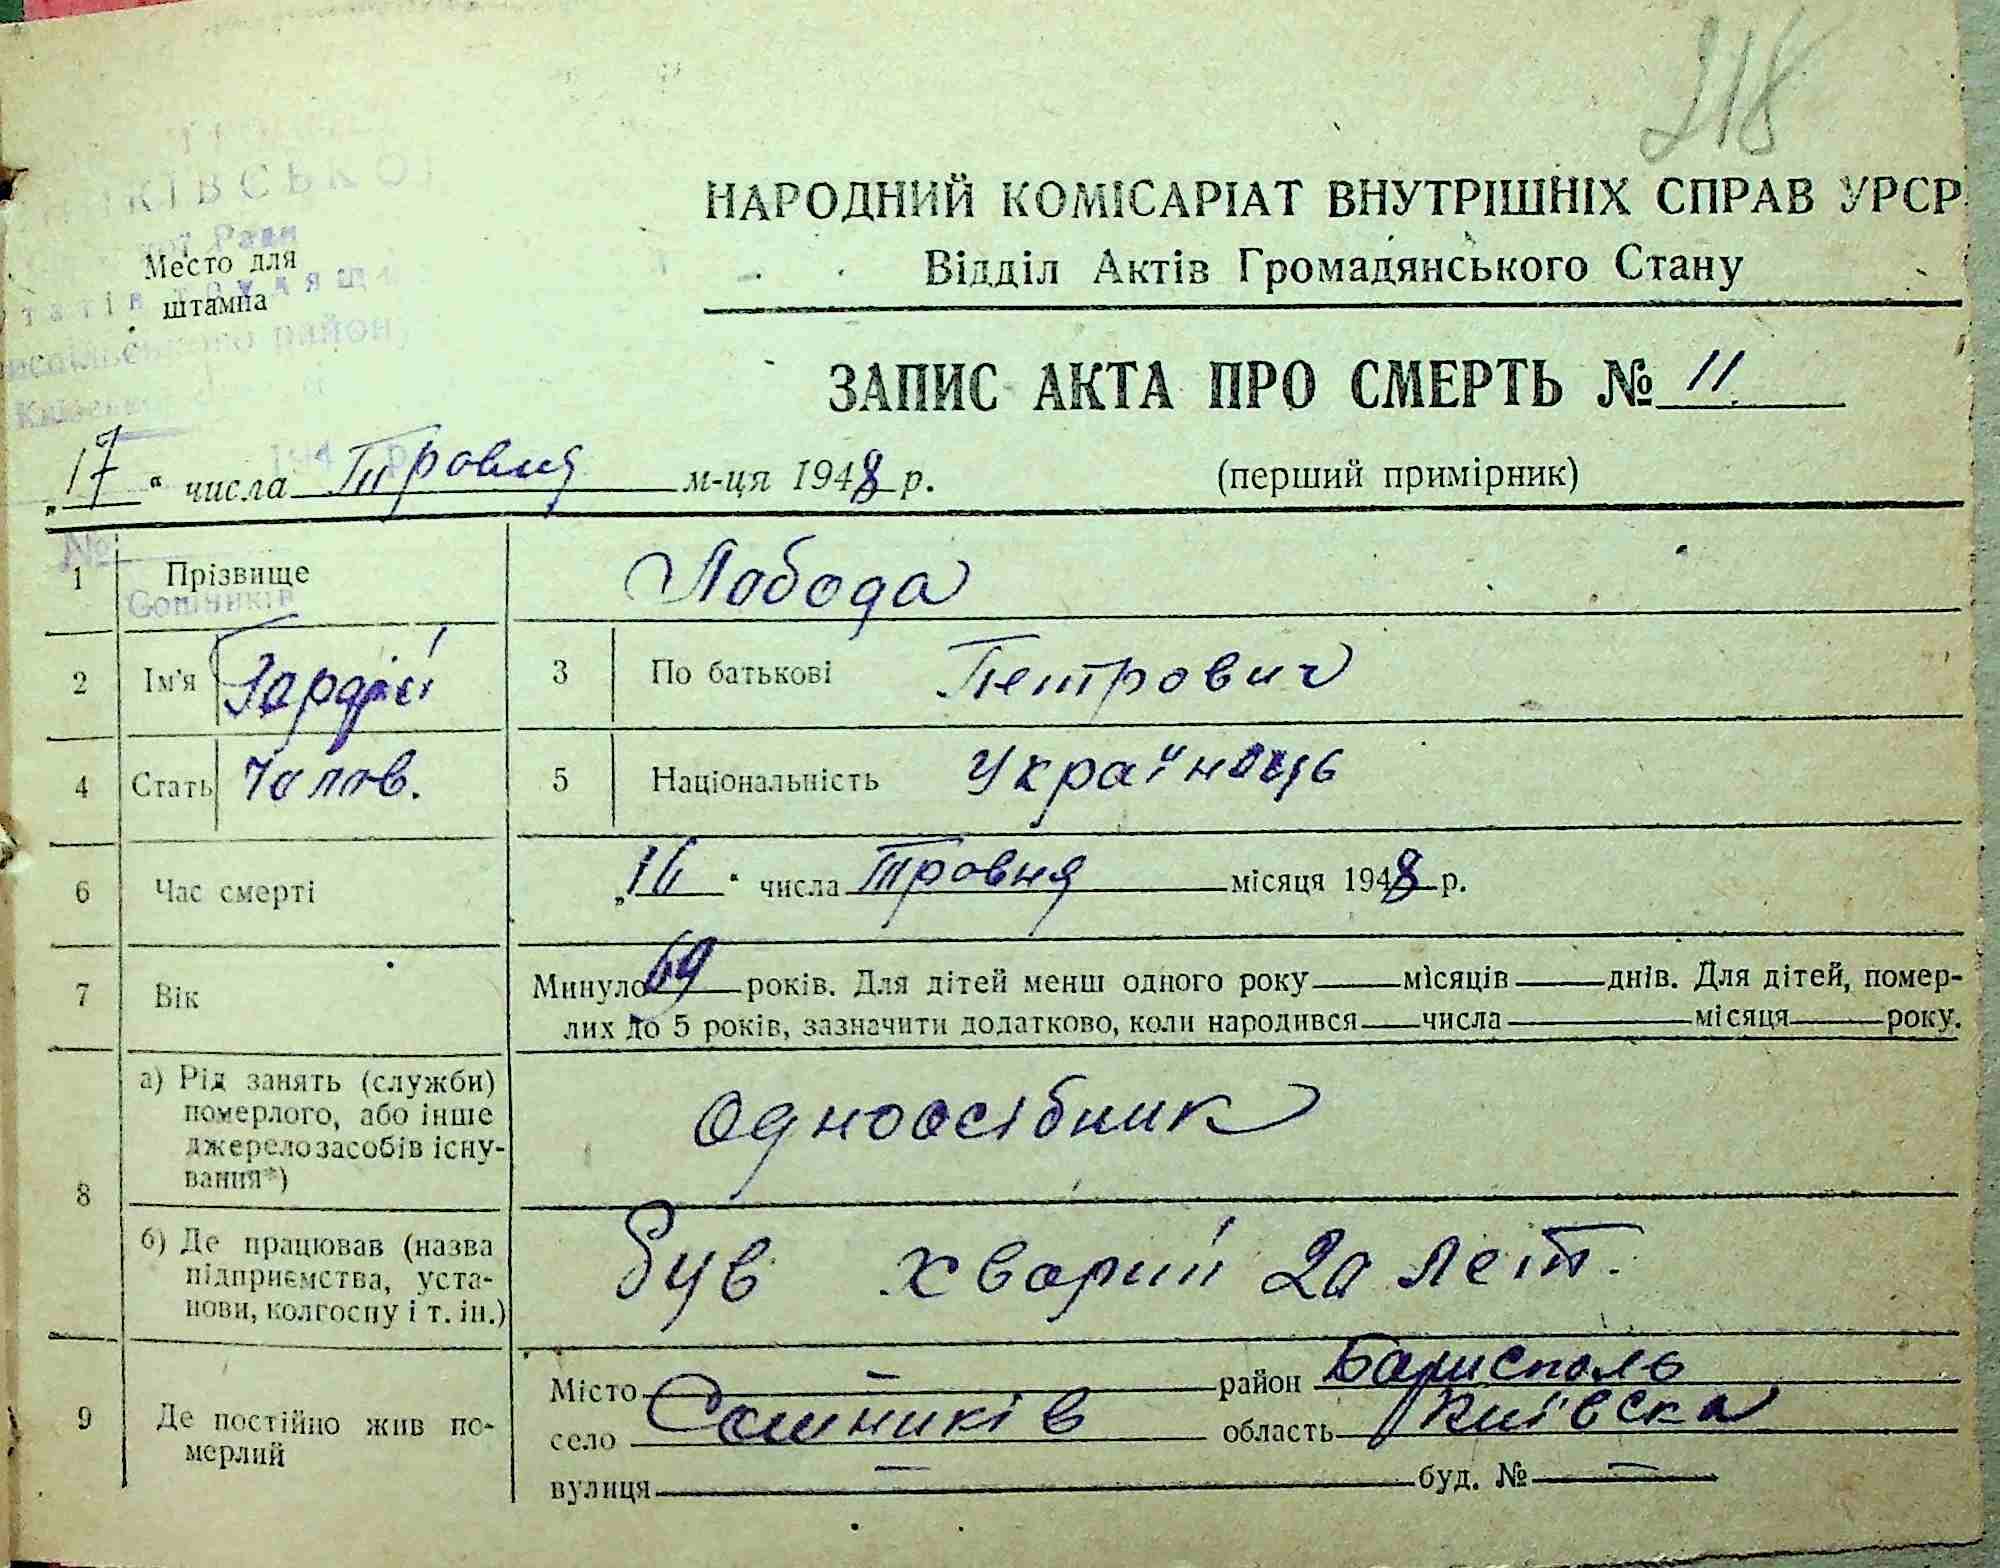 218
НАРОДНИЙ КОМІСАРІАТ ВНУТРІШНІХ СПРАВ УРСР
Відділ Актів Громадянського Стану
КІВСЬКОЇ
Ради
Место для
штампа
району
ЗАПИС АКТА ПРО СМЕРТЬ № 11
„17“ числа Тровня м-ця 1948 р. (перший примірник)
№
1 Прізвище Лобода
Сошників
2 Ім'я Гордій 3 По батькові Петрович
4 Стать Чолов. 5 Національність Українець
6 Час смерті „16“ числа Тровня місяця 1948 р.
7 Вік Минуло 69 років. Для дітей менш одного року — місяців — днів. Для дітей, помер-
лих до 5 років, зазначити додатково, коли народився — числа — місяця — року.
8 а) Рід занять (служби)
померлого, або інше
джерело засобів існу-
вання*)
Одноосібник
б) Де працював (назва
підприємства, уста-
нови, колгоспу і т. ін.)
Був хворий 20 лет.
9 Де постійно жив по-
мерлий
Місто — район Борисполь
село Сошників область Київска
вулиця — буд. № —